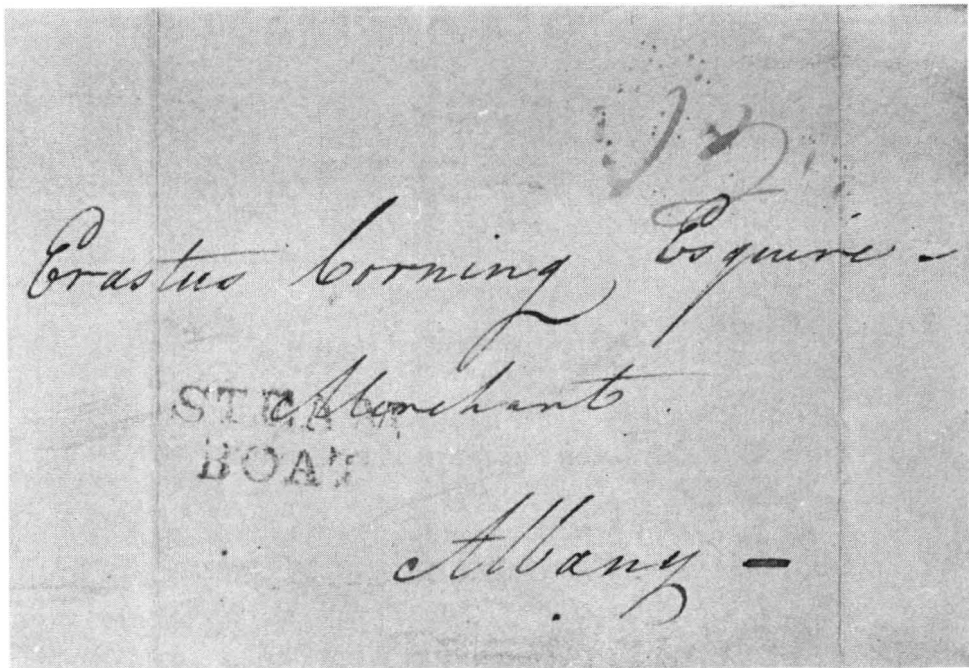 Erastus Corning Esquire -
Merchant.
STEAM
BOAT
Albany -